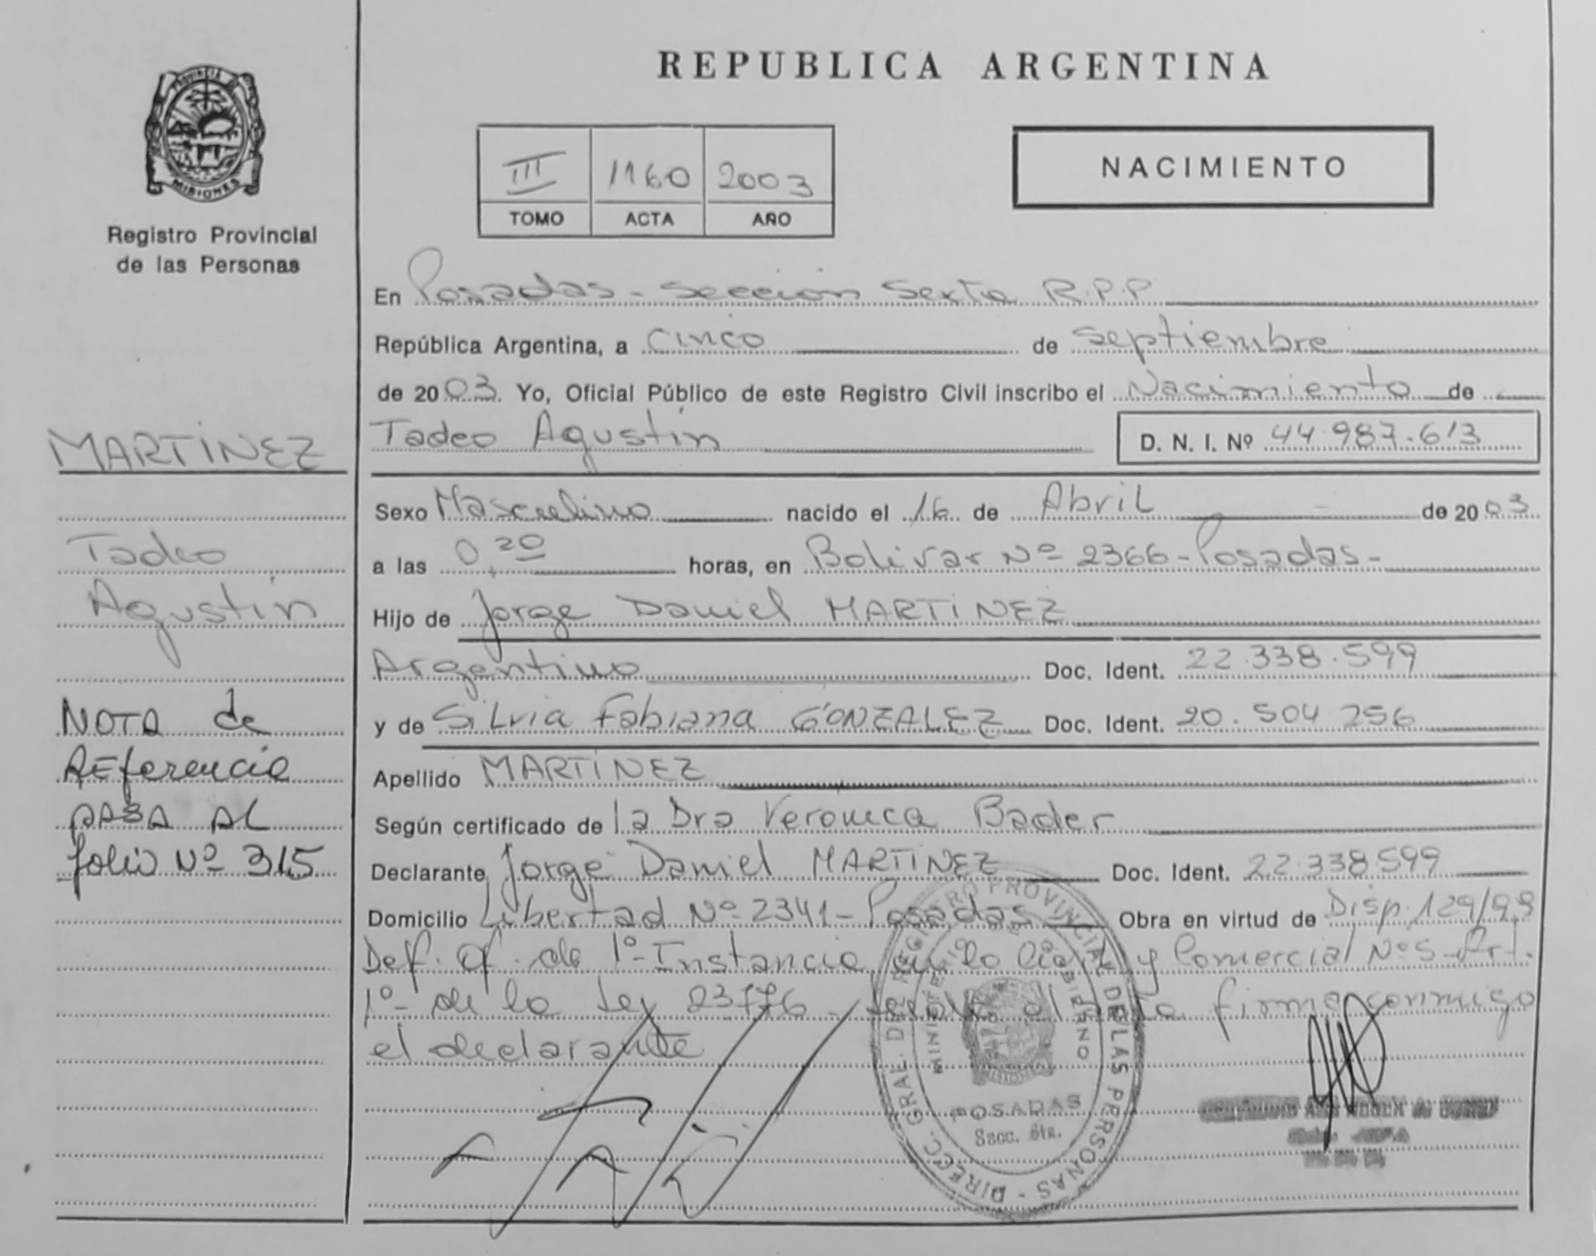 REPUBLICA ARGENTINA
PROVINCIA DE
MISIONES
Registro Provincial
de las Personas
III 1160 2003
TOMO ACTA AÑO
NACIMIENTO
En Posadas - Sección Sexta R.P.P.
República Argentina, a Cinco de Septiembre
de 2003. Yo, Oficial Público de este Registro Civil inscribo el Nacimiento de
Tadeo Agustín D. N. I. Nº 44.987.613
MARTINEZ
Tadeo
Agustín
Sexo Masculino nacido el 16 de Abril de 2003
a las 0,20 horas, en Bolivar Nº 2366 - Posadas -
Hijo de Jorge Daniel MARTINEZ
Argentino Doc. Ident. 22.338.599
y de Silvia Fabiana GONZALEZ Doc. Ident. 20.504.256
Apellido MARTINEZ
Según certificado de la Dra Veronica Bader
Declarante Jorge Daniel MARTINEZ Doc. Ident. 22.338.599
Domicilio Libertad Nº 2341 - Posadas Obra en virtud de Disp. 129/98
Def. Of. de 1º Instancia en lo Civil y Comercial Nº 5 - Art.
1º de la Ley 23776 - el acta firma conmigo
el declarante
NOTA de
REferencia
PASA AL
folio Nº 315
DIRECC. GRAL. DEL REGISTRO PROVINCIAL DE LAS PERSONAS
POSADAS
Secc. 6ta.